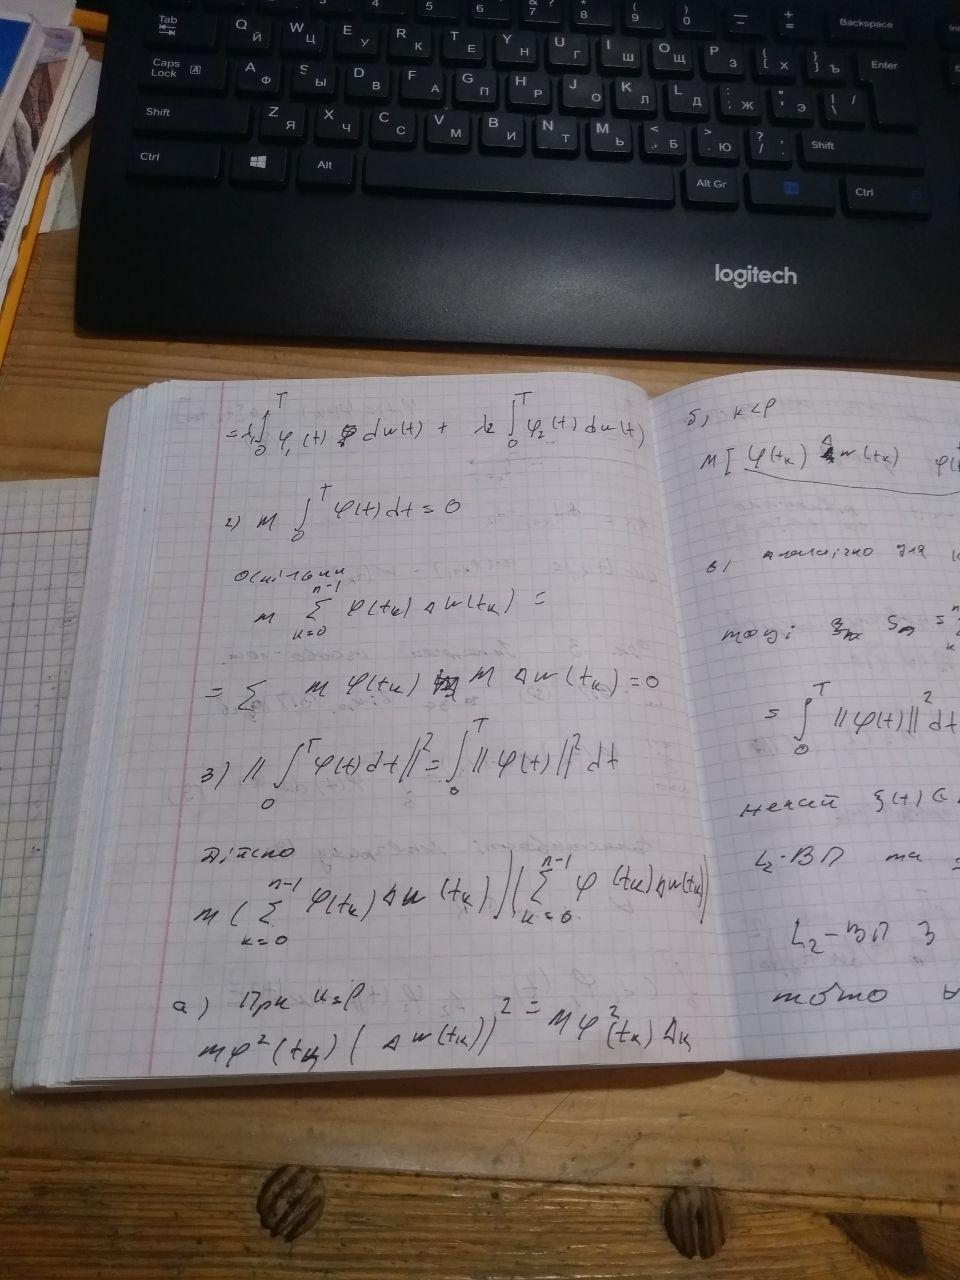 Tab Q Й W Ц E У R К T Е Y Н U Г I Ш O Щ P З { [ Х } ] Ъ Backspace
Caps Lock A A Ф S Ы D В F А G П H Р J О K Л L Д : ; Ж " ' Э | \ / Enter
Shift Z Я X Ч C С V М B И N Т M Ь < , Б > . Ю ? / . Shift
Ctrl Alt Alt Gr Ctrl
logitech
= λ₁ ∫₀ᵀ φ₁(t) dw(t) + λ₂ ∫₀ᵀ φ₂(t) dw(t)
2) M ∫₀ᵀ φ(t) dt = 0
Оскільки
M Σₖ₌₀ⁿ⁻¹ φ(tₖ) Δw(tₖ) =
= Σ M φ(tₖ) M Δw(tₖ) = 0
3) || ∫₀ᵀ φ(t) dt ||² = ∫₀ᵀ || φ(t) ||² dt
Дійсно
M ( Σₖ₌₀ⁿ⁻¹ φ(tₖ) Δw(tₖ) ) ( Σₖ₌₀ⁿ⁻¹ φ(tₖ) Δw(tₖ) )
а) При k=p
Mφ²(tₖ) ( Δw(tₖ))² = Mφ²(tₖ) Δₖ
б) k<p
M [ φ(tₖ) Δw(tₖ) φ(
в) Аналогічно для
тоді Sₙ =
= ∫₀ᵀ || φ(t) ||² dt
Нехай ξ(t) ∈
L₂-ВП та
L₂-ВП З
тобто